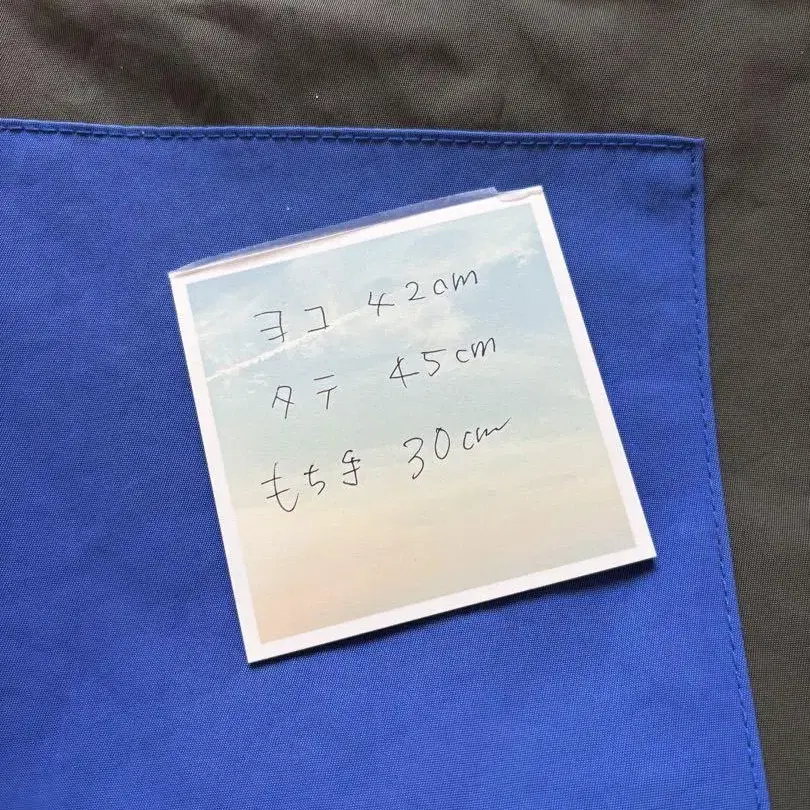 ヨコ 42cm
タテ 45cm
もち手 30cm